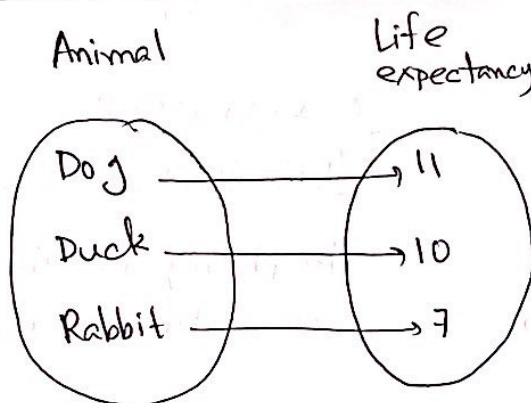 Animal
Life
expectancy
Dog 11
Duck 10
Rabbit 7